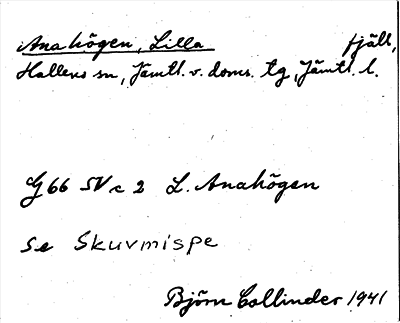 Anahögen, Lilla fjäll,
Hallens sn, Jämtl. v. doms. tg, Jämtl. l.
G 66 SV c 2 L. Anahögen
se Skuvmispe
Björn Collinder 1941